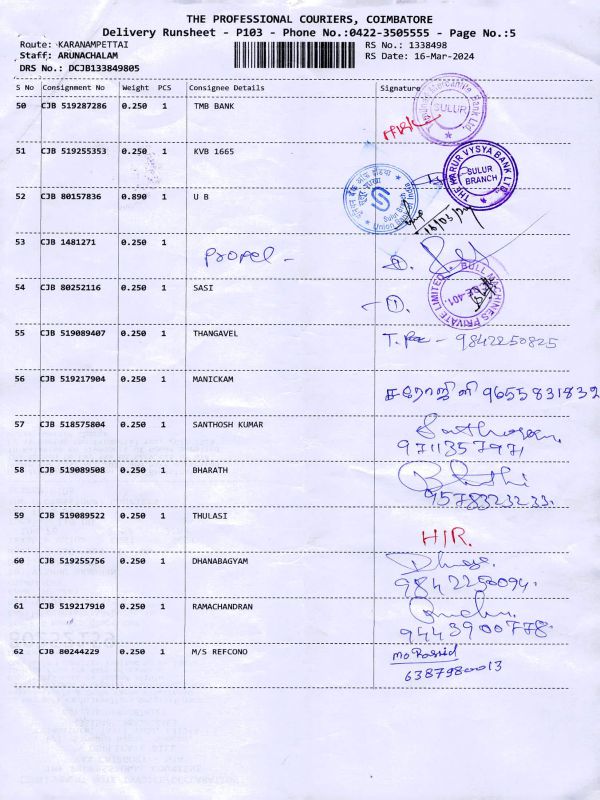 THE PROFESSIONAL COURIERS, COIMBATORE
Delivery Runsheet - P103 - Phone No.:0422-3505555 - Page No.:5
Route: KARANAMPETTAI RS No.: 1338498
Staff: ARUNACHALAM RS Date: 16-Mar-2024
DRS No.: DCJB133849805
S No Consignment No Weight PCS Consignee Details Signature
50 CJB 519287286 0.250 1 TMB BANK
SULUR
51 CJB 519255353 0.250 1 KVB 1665
THE KARUR VYSYA BANK LTD.
SULUR BRANCH
52 CJB 80157836 0.890 1 U B
Sulur Branch
Union Bank of India
53 CJB 1481271 0.250 1
Propel -
54 CJB 80252116 0.250 1 SASI
BULL MACHINES PRIVATE LIMITED
55 CJB 519089407 0.250 1 THANGAVEL
9842250825
56 CJB 519217904 0.250 1 MANICKAM
சரோஜினி 9655831832
57 CJB 518575804 0.250 1 SANTHOSH KUMAR
9711357971
58 CJB 519089508 0.250 1 BHARATH
9578323233
59 CJB 519089522 0.250 1 THULASI
H/R.
60 CJB 519255756 0.250 1 DHANABAGYAM
9842250094.
61 CJB 519217910 0.250 1 RAMACHANDRAN
9443900778.
62 CJB 80244229 0.250 1 M/S REFCONO
mo Rassid
6387980013